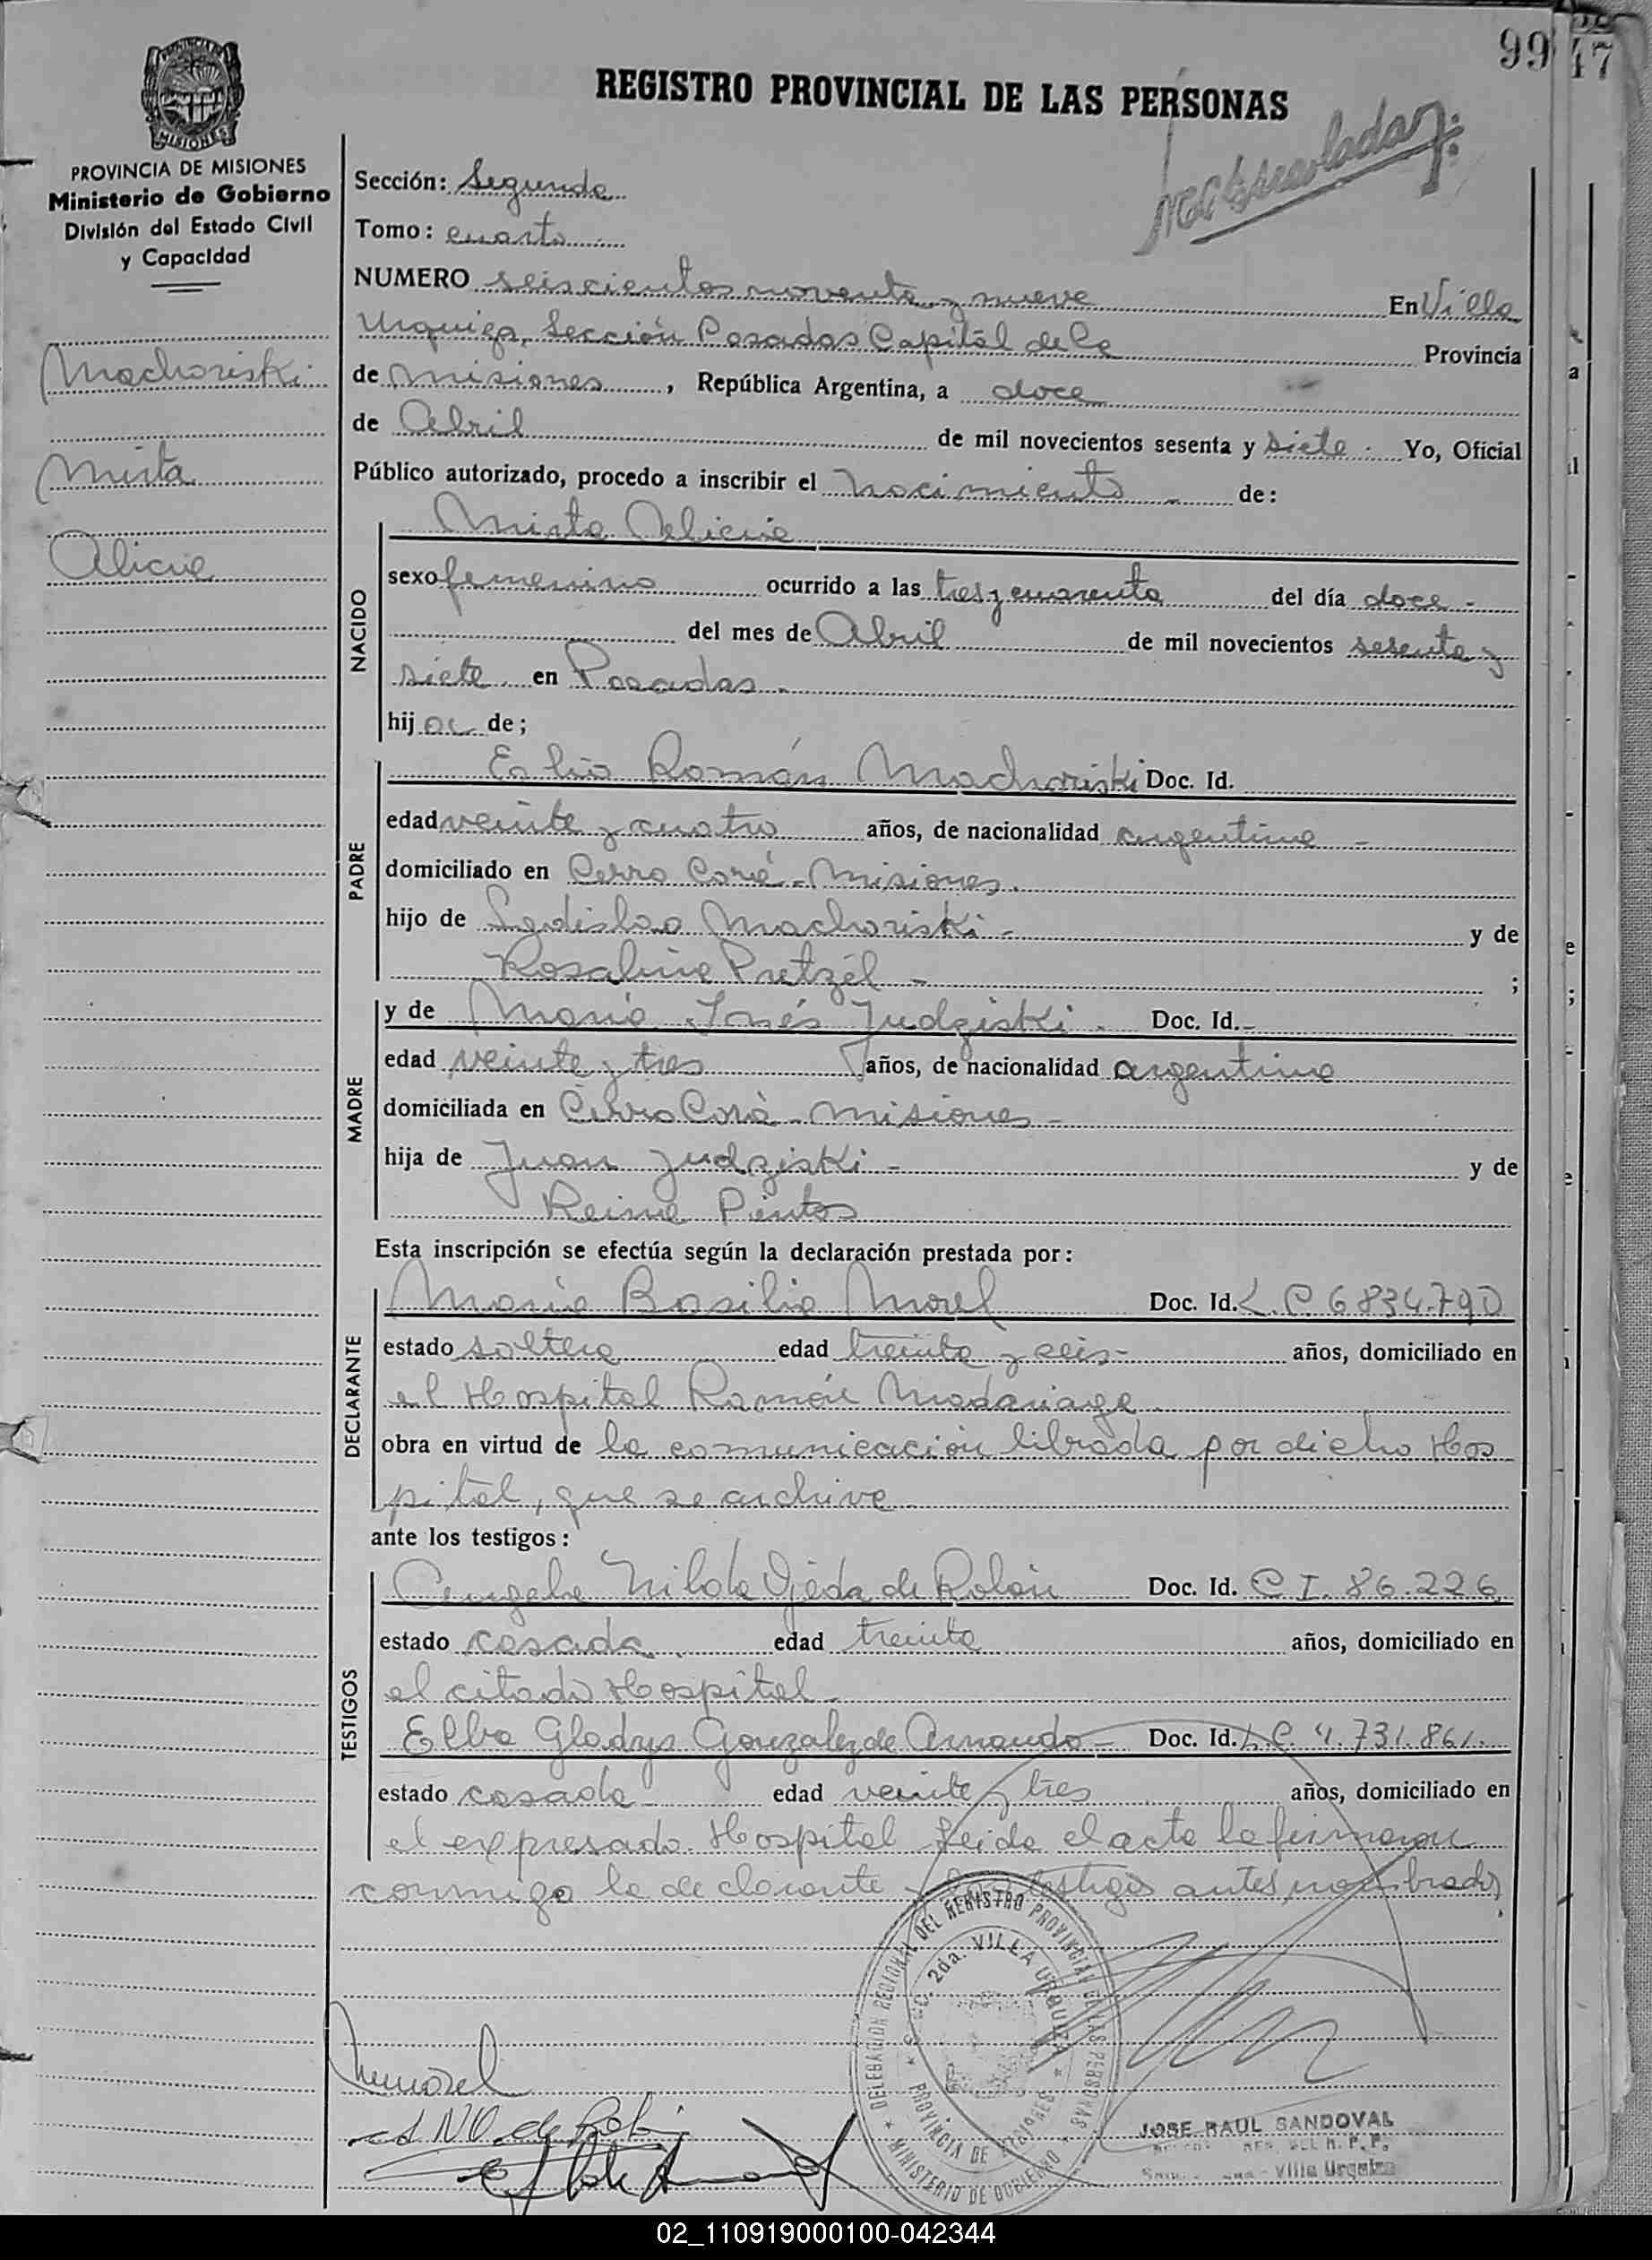 99 47
REGISTRO PROVINCIAL DE LAS PERSONAS
MISIONES
PROVINCIA DE MISIONES
Ministerio de Gobierno
División del Estado Civil
y Capacidad
Machoriski
Mirta
Alicia
Sección: Segunda
Tomo: cuarto
NUMERO seiscientos noventa y nueve En Villa
Urquiza, Sección Posadas Capital de la Provincia
de Misiones, República Argentina, a doce
de Abril de mil novecientos sesenta y siete. Yo, Oficial
Público autorizado, procedo a inscribir el nacimiento de:
Mirta Alicia
NACIDO
sexo femenino ocurrido a las tres y cuarenta del día doce -
del mes de Abril de mil novecientos sesenta y
siete en Posadas -
hija de;
PADRE
Román Machoriski Doc. Id.
edad veinte y cuatro años, de nacionalidad argentina -
domiciliado en Cerro Corá - Misiones.
hijo de Ladislao Machoriski - y de
Rosalina Pretzél - ;
MADRE
y de María Inés Judziski. Doc. Id. -
edad veinte y tres años, de nacionalidad argentina
domiciliada en Cerro Corá - Misiones -
hija de Juan Judziski - y de
Reina Pintos
Esta inscripción se efectúa según la declaración prestada por:
DECLARANTE
María Basilia Morel Doc. Id. L.C. 6834.790
estado soltera edad treinta y seis - años, domiciliado en
el Hospital Ramón Madariaga
obra en virtud de la comunicación librada por dicho Hos
pital, que se archiva
ante los testigos:
TESTIGOS
Angela Nilda Ojeda de Rolón Doc. Id. C.I. 86.226
estado casada. edad treinta años, domiciliado en
el citado Hospital -
Elba Gladys Gonzalez de Arnaudo - Doc. Id. L.C. 4.731.861.
estado casada edad veinte y tres años, domiciliado en
el expresado Hospital Leida el acta la firmaron
conmigo la declarante testigos antes nombrados
DELEGACION REGIONAL DEL REGISTRO PROVINCIAL DE LAS PERSONAS
MINISTERIO DE GOBIERNO
SECC. 2da. VILLA URQUIZA
PROVINCIA DE MISIONES
Mmorel
JOSE RAUL SANDOVAL
Villa Urquiza
02_110919000100-042344